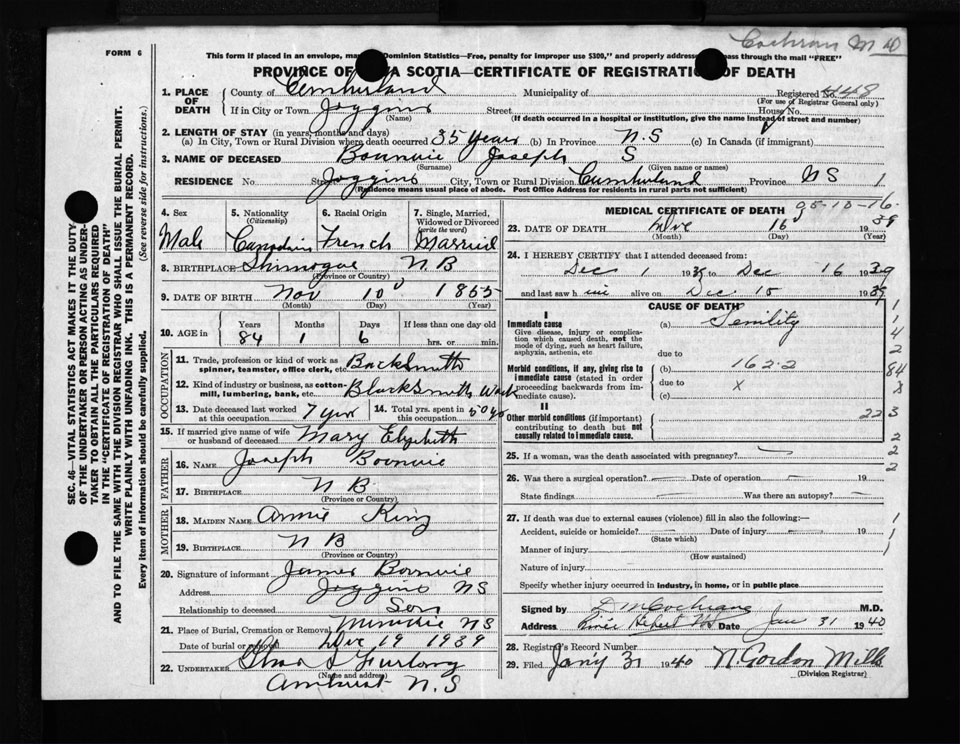 Cochran M D
FORM 6
This form if placed in an envelope, ma Dominion Statistics—Free, penalty for improper use $300," and properly address ass through the mail "FREE"
PROVINCE OF VA SCOTIA—CERTIFICATE OF REGISTRATION OF DEATH
1. PLACE OF DEATH
County of Cumberland Municipality of Registered No. 448
(For use of Registrar General only)
If in City or Town Joggins Street House No.
(Name) (If death occurred in a hospital or institution, give the name instead of street and number)
2. LENGTH OF STAY (in years, months and days)
(a) In City, Town or Rural Division where death occurred 35 years (b) In Province N.S (c) In Canada (if immigrant)
3. NAME OF DECEASED Bounvie Joseph S
(Surname) (Given name or names)
RESIDENCE No. Str Joggins City, Town or Rural Division Cumberland Province NS 1
(Residence means usual place of abode. Post Office Address for residents in rural parts not sufficient)
4. Sex Male
5. Nationality (Citizenship) Canadian
6. Racial Origin French
7. Single, Married, Widowed or Divorced (write the word) Married
8. BIRTHPLACE Shimogue N.B
(Province or Country)
9. DATE OF BIRTH Nov 10 1855
(Month) (Day) (Year)
10. AGE in Years 84 Months 1 Days 6 If less than one day old hrs. or min.
OCCUPATION
11. Trade, profession or kind of work as spinner, teamster, office clerk, etc. Backsmith
12. Kind of industry or business, as cotton-mill, lumbering, bank, etc. Blacksmith Work
13. Date deceased last worked at this occupation 7 years
14. Total yrs. spent in this occupation 50 yrs
15. If married give name of wife or husband of deceased Mary Elizibeth
FATHER
16. NAME Joseph Bounvie
17. BIRTHPLACE N B
(Province or Country)
MOTHER
18. MAIDEN NAME Annie King
19. BIRTHPLACE N B
(Province or Country)
20. Signature of informant James Bounvie
Address Joggins NS
Relationship to deceased Son
21. Place of Burial, Cremation or Removal Minudie NS
Date of burial or removal Dec 19 1939
22. UNDERTAKER Furlong
(Name and address)
Amherst N.S
MEDICAL CERTIFICATE OF DEATH 05-10-16
23. DATE OF DEATH Dec 16 1939
(Month) (Day) (Year)
24. I HEREBY CERTIFY that I attended deceased from:
Dec 1 1939 to Dec 16 1939
and last saw him alive on Dec 15 1939
CAUSE OF DEATH
I
Immediate cause (a) Senility
Give disease, injury or complication which caused death, not the mode of dying, such as heart failure, asphyxia, asthenia, etc
due to
Morbid conditions, if any, giving rise to immediate cause (stated in order proceeding backwards from immediate cause).
(b) 162-2
due to x
(c)
II
Other morbid conditions (if important) contributing to death but not causally related to immediate cause.
223
1
1
4
2
84
x
2
2
25. If a woman, was the death associated with pregnancy?
26. Was there a surgical operation? Date of operation 19
State findings Was there an autopsy?
27. If death was due to external causes (violence) fill in also the following:—
Accident, suicide or homicide? Date of injury 19
(State which)
Manner of injury
(How sustained)
Nature of injury
Specify whether injury occurred in industry, in home, or in public place
1
1
1
Signed by D M Cochrane M.D.
Address River Hebert NS Date Jan 31 1940
28. Registrar's Record Number
29. Filed Jany 31 1940 N. Gordon Mills
(Division Registrar)
SEC. 46—VITAL STATISTICS ACT MAKES IT THE DUTY
OF THE UNDERTAKER OR PERSON ACTING AS UNDER-
TAKER TO OBTAIN ALL THE PARTICULARS REQUIRED
IN THE "CERTIFICATE OF REGISTRATION OF DEATH"
AND TO FILE THE SAME WITH THE DIVISION REGISTRAR WHO SHALL ISSUE THE BURIAL PERMIT.
WRITE PLAINLY WITH UNFADING INK. THIS IS A PERMANENT RECORD.
Every item of information should be carefully supplied. (See reverse side for instructions.)